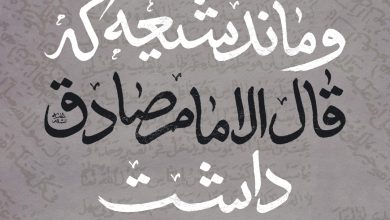 و ماند شیعه که
قال الامام صادق
داشت